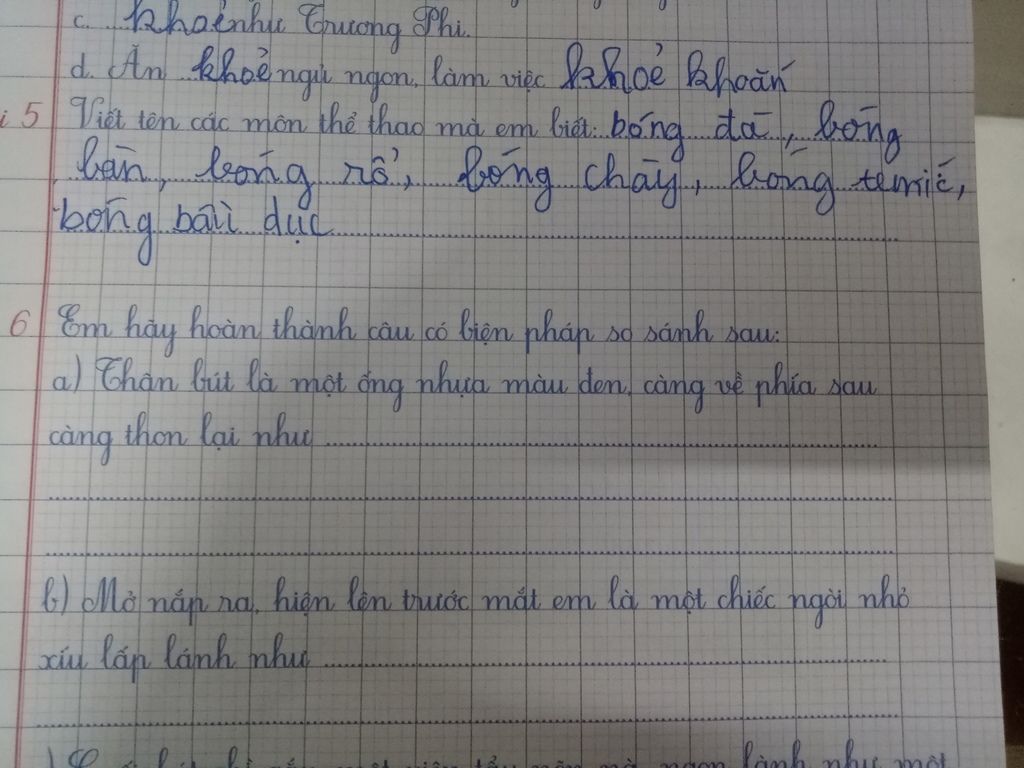 c. khoẻ như Trương Phi.
d. Ăn khoẻ ngủ ngon, làm việc khoẻ khoắn
i 5 Viết tên các môn thể thao mà em biết: bóng đá, bóng
bàn, bóng rổ, bóng chày, bóng
bóng bầu dục
6 Em hãy hoàn thành câu có biện pháp so sánh sau:
a) Thân bút là một ống nhựa màu đen, càng về phía sau
càng thon lại như
b) Mở nắp ra, hiện lên trước mắt em là một chiếc ngòi nhỏ
xíu lấp lánh như
ngon lành như một